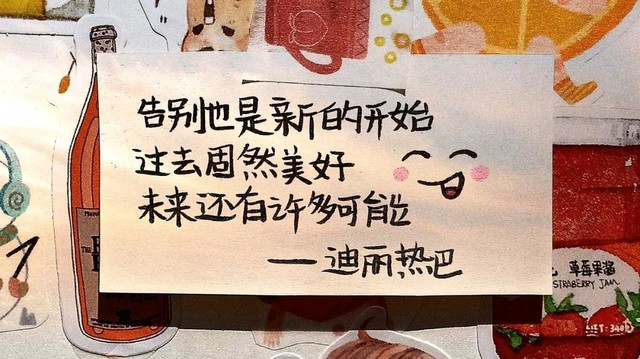 告别也是新的开始
过去固然美好
未来还有许多可能
——迪丽热巴
草莓果酱
STRABERRY JAM